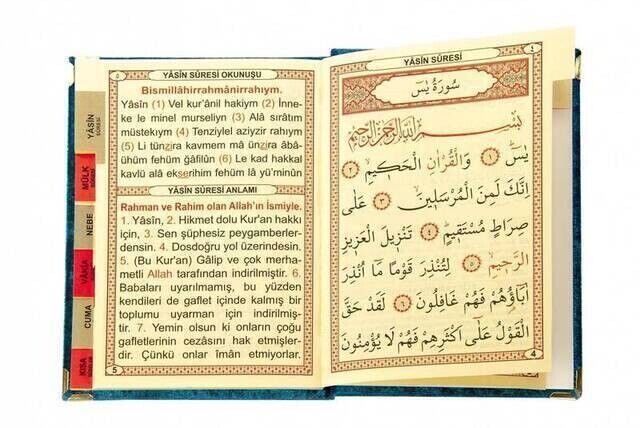 ٥
YÂSİN SÛRESİ OKUNUŞU
Bismillâhirrahmânirrahıym.
Yâsîn (1) Vel kur'ânil hakiym (2) İnne-
ke le minel murseliyn (3) Alâ sırâtım
müstekıym (4) Tenziylel aziyzir rahıym
(5) Li tünzira kavmem mâ ünzira âbâ-
ühüm fehüm ğâfilûn (6) Le kad hakkal
kavlü alâ ekserihim fehüm lâ yü'minûn
YÂSİN SÛRESİ ANLAMI
Rahman ve Rahim olan Allah'ın İsmiyle.
1. Yâsîn, 2. Hikmet dolu Kur'an hakkı
için, 3. Sen şüphesiz peygamberler-
densin. 4. Dosdoğru yol üzerindesin.
5. (Bu Kur'an) Gâlip ve çok merha-
metli Allah tarafından indirilmiştir. 6.
Babaları uyarılmamış, bu yüzden
kendileri de gaflet içinde kalmış bir
toplumu uyarman için indirilmiş-
tir. 7. Yemin olsun ki onların çoğu
gafletlerinin cezasını hak etmişler-
dir. Çünkü onlar îmân etmiyorlar.
5
YÂSİN
SÛRESİ
MÜLK
SÛRESİ
NEBE
VÂKIA
CUMA
KISA
SÛRELER
٤
YÂSİN SÛRESİ
سُورَةُ يٰسٓ
بِسْمِ اللّٰهِ الرَّحْمٰنِ الرَّحِيمِ
يٰسٓ ١ وَالْقُرْاٰنِ الْحَكِيمِ ٢
اِنَّكَ لَمِنَ الْمُرْسَلِينَ ٣ عَلٰى
صِرَاطٍ مُسْتَقِيمٍ ٤ تَنْزِيلَ الْعَزِيزِ
الرَّحِيمِ ٥ لِتُنْذِرَ قَوْمًا مَٓا اُنْذِرَ
اٰبَٓاؤُهُمْ فَهُمْ غَافِلُونَ ٦ لَقَدْ حَقَّ
الْقَوْلُ عَلٰٓى اَكْثَرِهِمْ فَهُمْ لَا يُؤْمِنُونَ
4